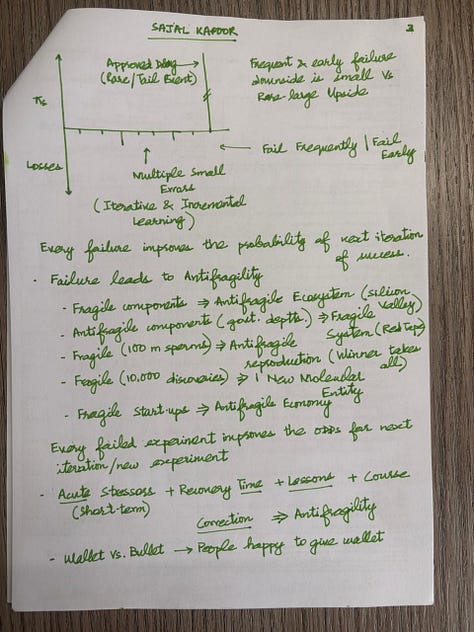 SAJAL KAPOOR
3
Approved Drug
(Rare/Tail Event)
Frequent & early failure
downside is small Vs
Rare-large Upside
Losses
Fail Frequently | Fail
Early
Multiple Small
Errors
(Iterative & Incremental
Learning)
Every failure improves the probability of next iteration
of success.
· Failure leads to Antifragility
- Fragile components ⇒ Antifragile Ecosystem (Silicon
Valley)
- Antifragile components (govt. deptts.) ⇒ Fragile
System (Red Tape)
- Fragile (100 m sperms) ⇒ Antifragile
reproduction (Winner takes
all)
- Fragile (10,000 discoveries) ⇒ 1 New Molecular
Entity
- Fragile Start-ups ⇒ Antifragile Economy
Every failed experiment improves the odds for next
iteration/new experiment
- Acute Stressors + Recovery Time + Lessons + Course
(Short-term)
Correction ⇒ Antifragility
- Wallet vs. Bullet → People happy to give wallet